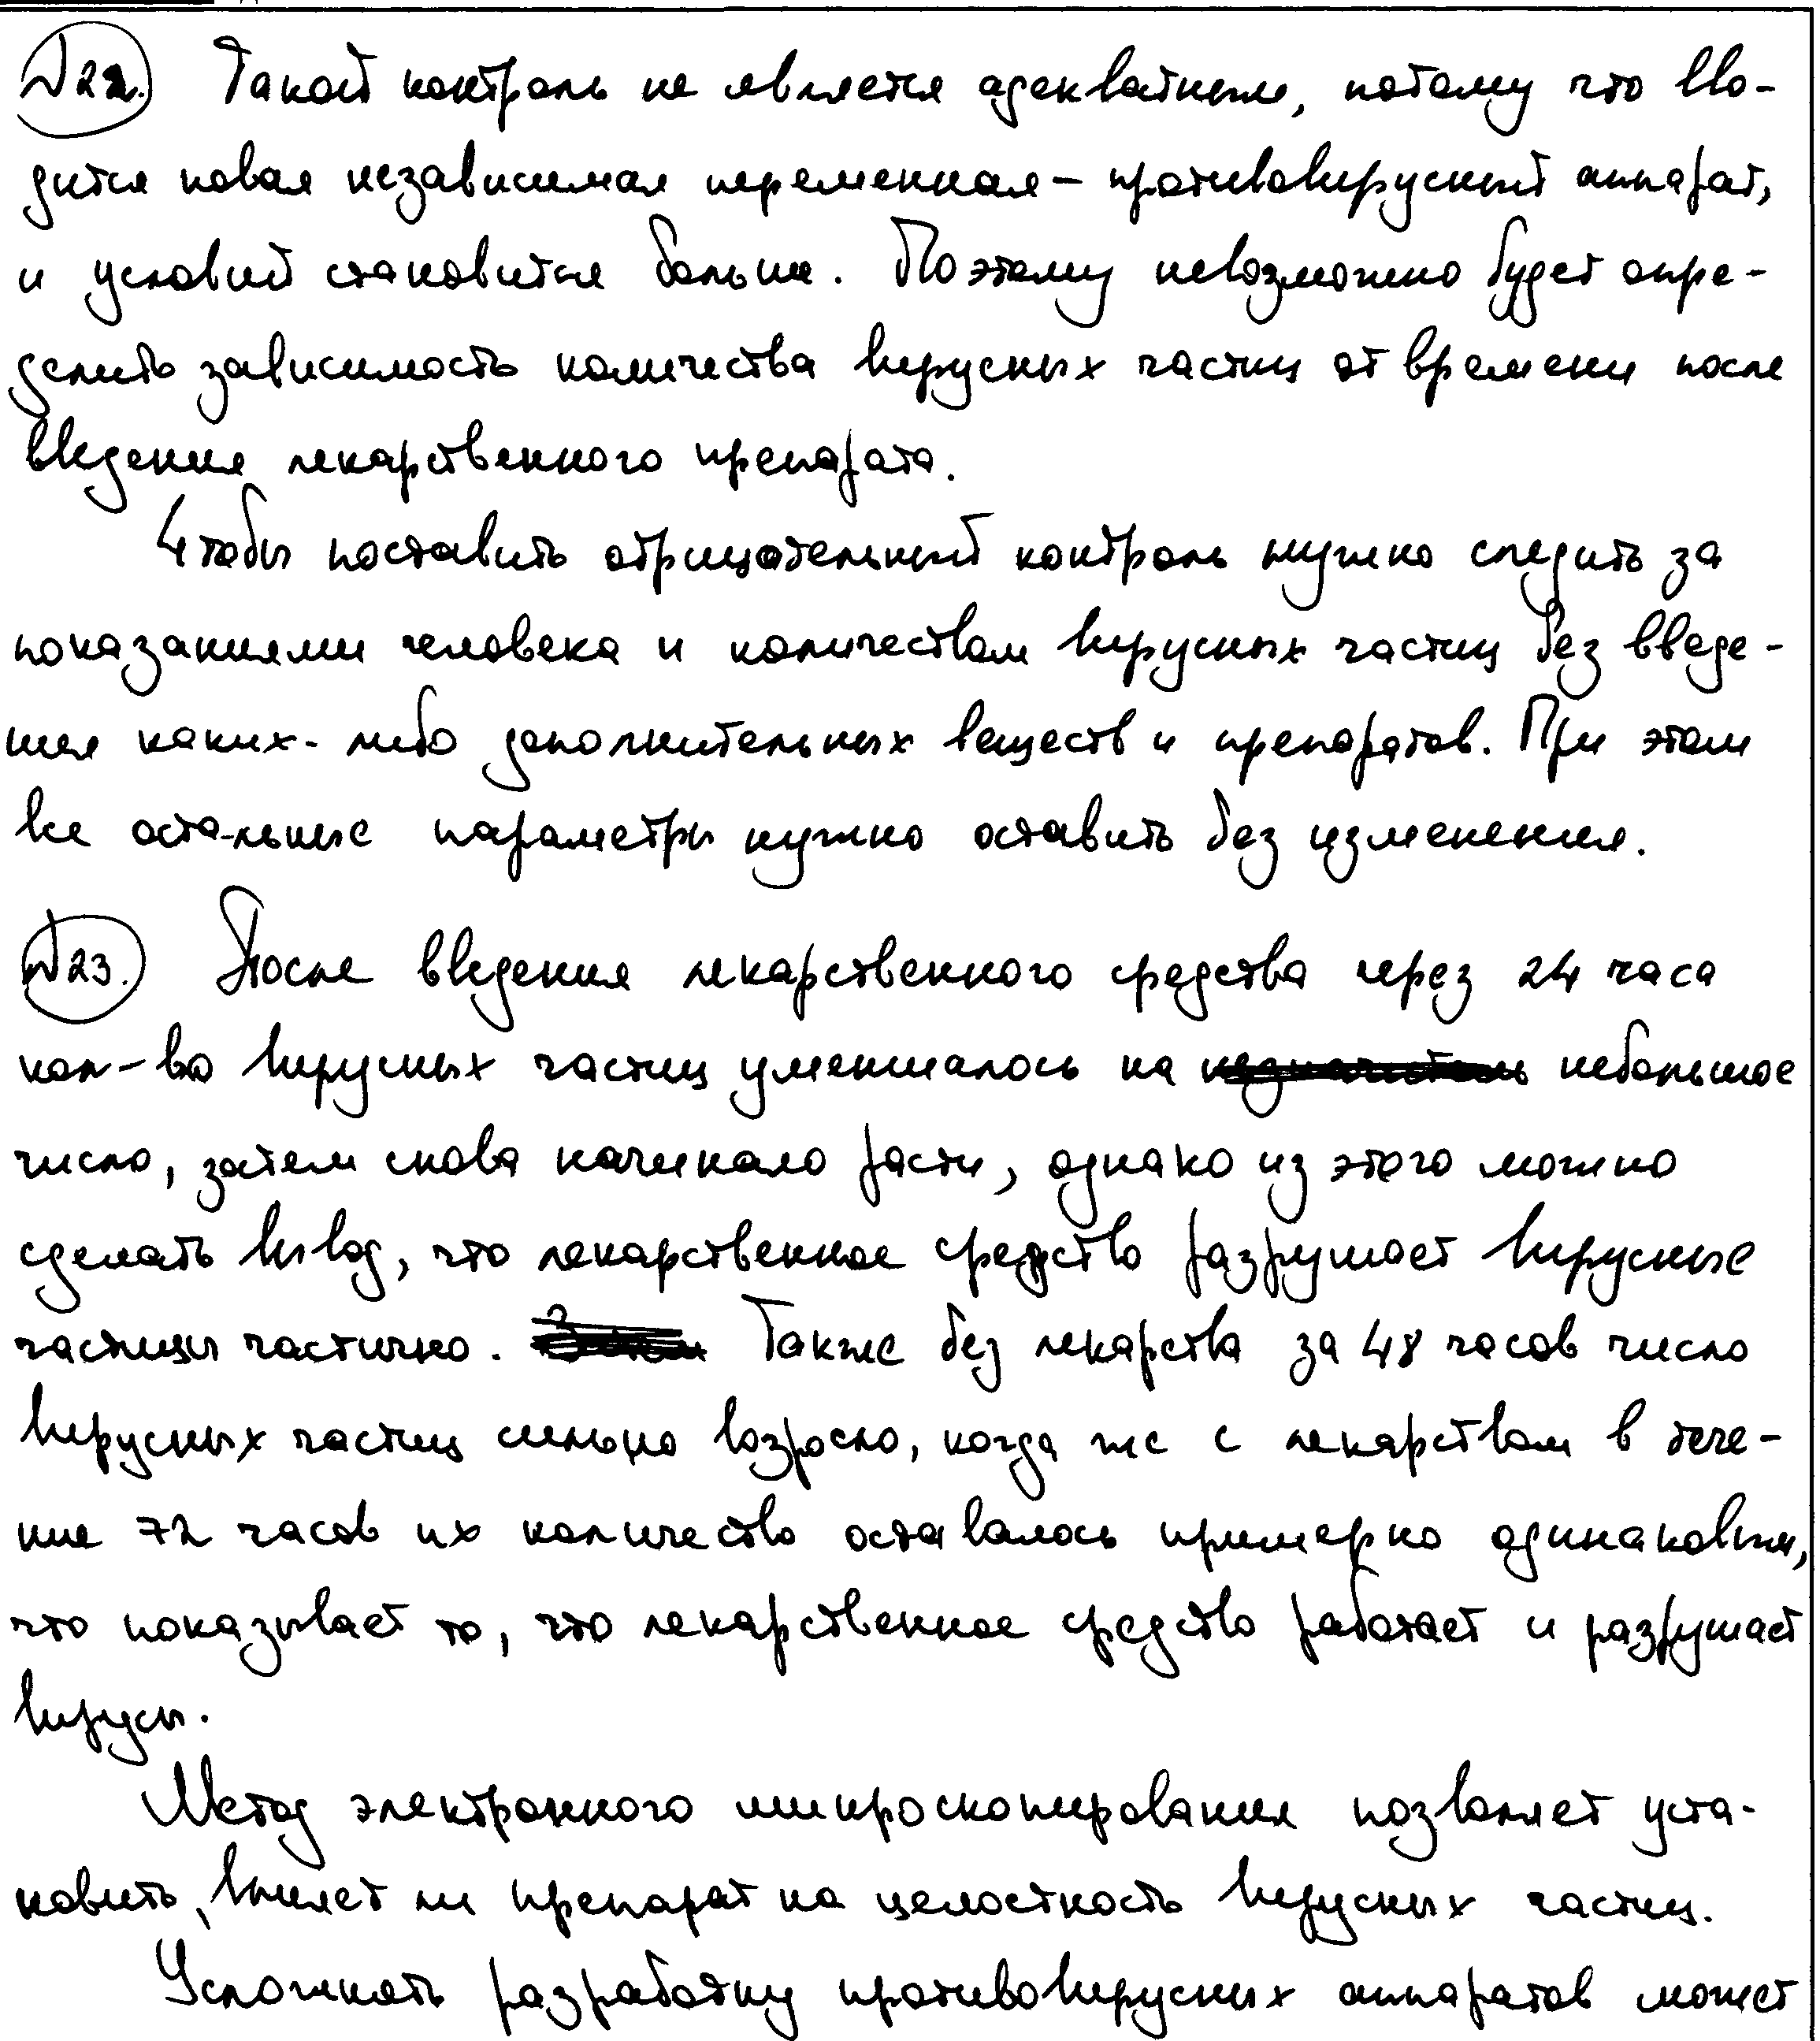 №22. Такой контроль не является адекватным, потому что вво-
дится новая независимая переменная – противовирусный аппарат,
и условий становится больше. Поэтому невозможно будет опре-
делить зависимость количества вирусных частиц от времени после
введения лекарственного препарата.
Чтобы поставить отрицательный контроль нужно следить за
показаниями человека и количеством вирусных частиц без введе-
ния каких-либо дополнительных веществ и препаратов. При этом
все остальные параметры нужно оставить без изменения.
№23. После введения лекарственного средства через 24 часа
кол-во вирусных частиц уменшалось на небольшое
число, затем снова начинало расти, однако из этого можно
сделать вывод, что лекарственное средство разрушает вирусные
частицы частично. Также без лекарства за 48 часов число
вирусных частиц сильно возросло, когда же с лекарством в тече-
ние 72 часов их количество оставалось примерно одинаковым,
что показывает то, что лекарственное средство работает и разрушает
вирусы.
Метод электронного микроскопирования позволяет уста-
новить, влияет ли препарат на целостность вирусных частиц.
Усложнять разработку противовирусных аппаратов может